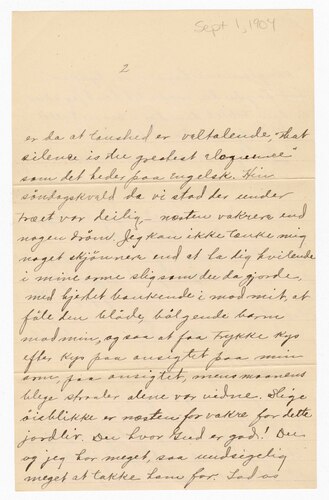 Sept 1, 1904
2
er da at taushed er veltalende, "that
silence is the greatest eloquence"
som det heder paa engelsk. Hin
söndagskvald da vi stod der under
træet var deilig – næsten vakrere end
nogen dröm. Jeg kan ikke tænke mig
noget skjönnere end at la dig hvilende
i mine arme slig som du da gjorde,
med hjertet bankende i mod mit, at
föle den bløde, bölgende barm
mod min, og saa at faa trykke kys
efter kys paa ansigtet paa min
arm, paa ansigtet, mens maanens
blege straaler alene var vidne. Slige
öieblikke er næsten for vakre for dette
jordliv. Du hvor Gud er god! Du
og jeg har meget, saa uudsigelig
meget at takke ham for. Lad os